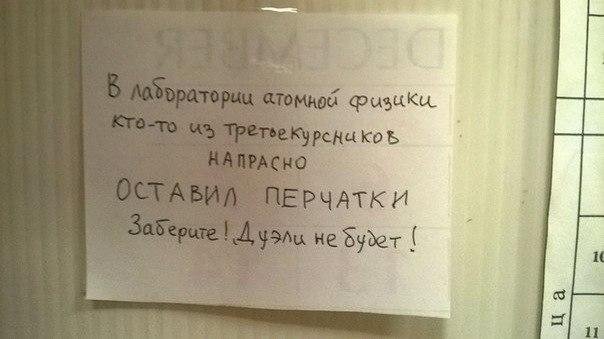 DECEMBER
В лаборатории атомной физики
кто-то из третьекурсников
НАПРАСНО
ОСТАВИЛ ПЕРЧАТКИ
Заберите! Дуэли не будет!
ца
10
11